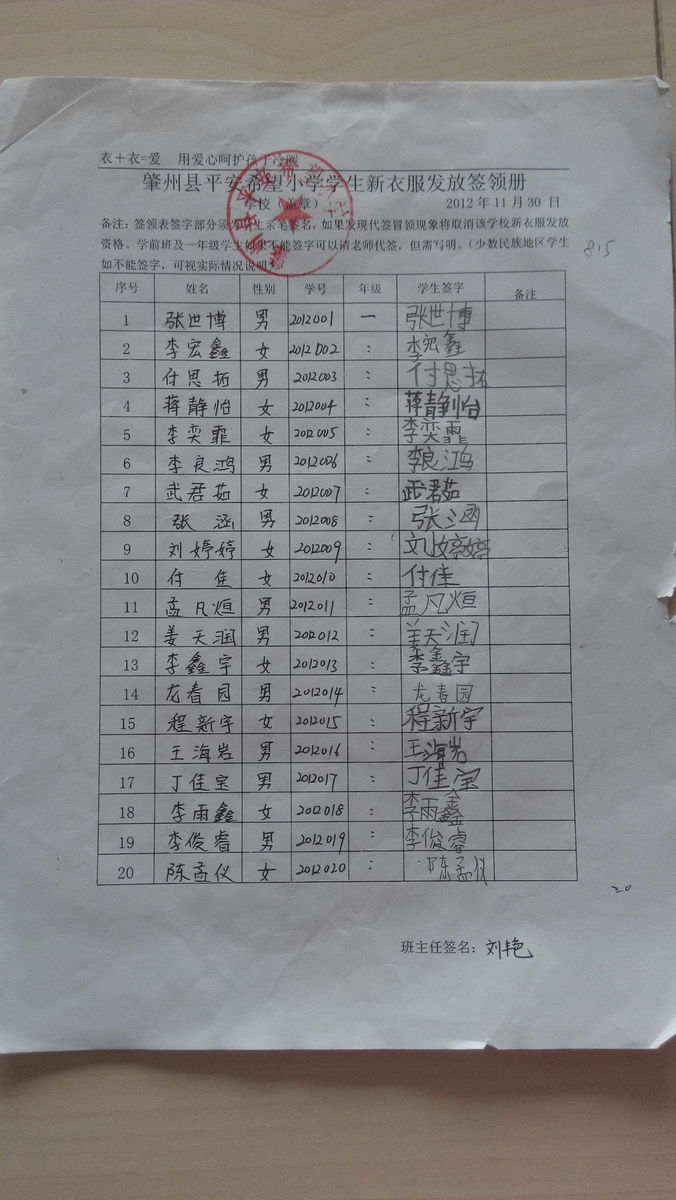 衣+衣=爱 用爱心呵护孩子冷暖
肇州县平安希望小学学生新衣服发放签领册
学校(盖章) 2012年11月30日
备注:签领表签字部分须为学生亲笔签名,如果发现代签冒领现象将取消该学校新衣服发放
资格。学前班及一年级学生如果不能签字可以请老师代签,但需写明。(少数民族地区学生
如不能签字,可视实际情况说明
815
序号 姓名 性别 学号 年级 学生签字 备注
1 张世博 男 2012001 一 张世博
2 李宏鑫 女 2012002 : 李宏鑫
3 付思拓 男 2012003 : 付思拓
4 蒋静怡 女 2012004 : 蒋静怡
5 李奕霏 女 2012005 : 李奕霏
6 李良鸿 男 2012006 : 李良鸿
7 武君茹 女 2012007 : 武君茹
8 张涵 男 2012008 : 张涵
9 刘婷婷 女 2012009 : 刘婷婷
10 付佳 女 2012010 : 付佳
11 孟凡烜 男 2012011 : 孟凡烜
12 姜天润 男 2012012 : 姜天润
13 李鑫宇 女 2012013 : 李鑫宇
14 龙春园 男 2012014 : 龙春园
15 程新宇 女 2012015 : 程新宇
16 王海岩 男 2012016 : 王海岩
17 丁佳宝 男 2012017 : 丁佳宝
18 李雨鑫 女 2012018 : 李雨鑫
19 李俊睿 男 2012019 : 李俊睿
20 陈孟仪 女 2012020 : 陈孟仪
20
班主任签名:刘艳